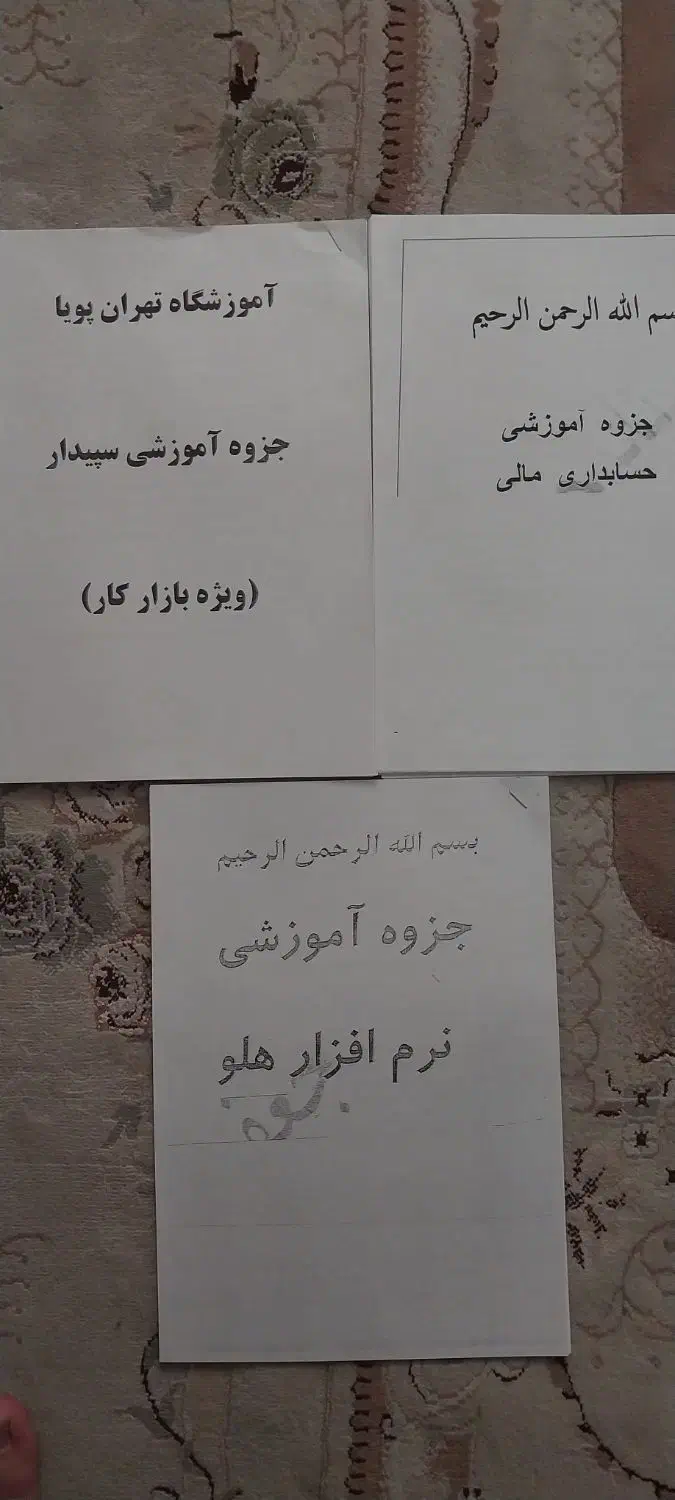 آموزشگاه تهران پویا
جزوه آموزشی سپیدار
(ویژه بازار کار)
بسم الله الرحمن الرحیم
جزوه آموزشی
حسابداری مالی
بسم الله الرحمن الرحیم
جزوه آموزشی
نرم افزار هلو